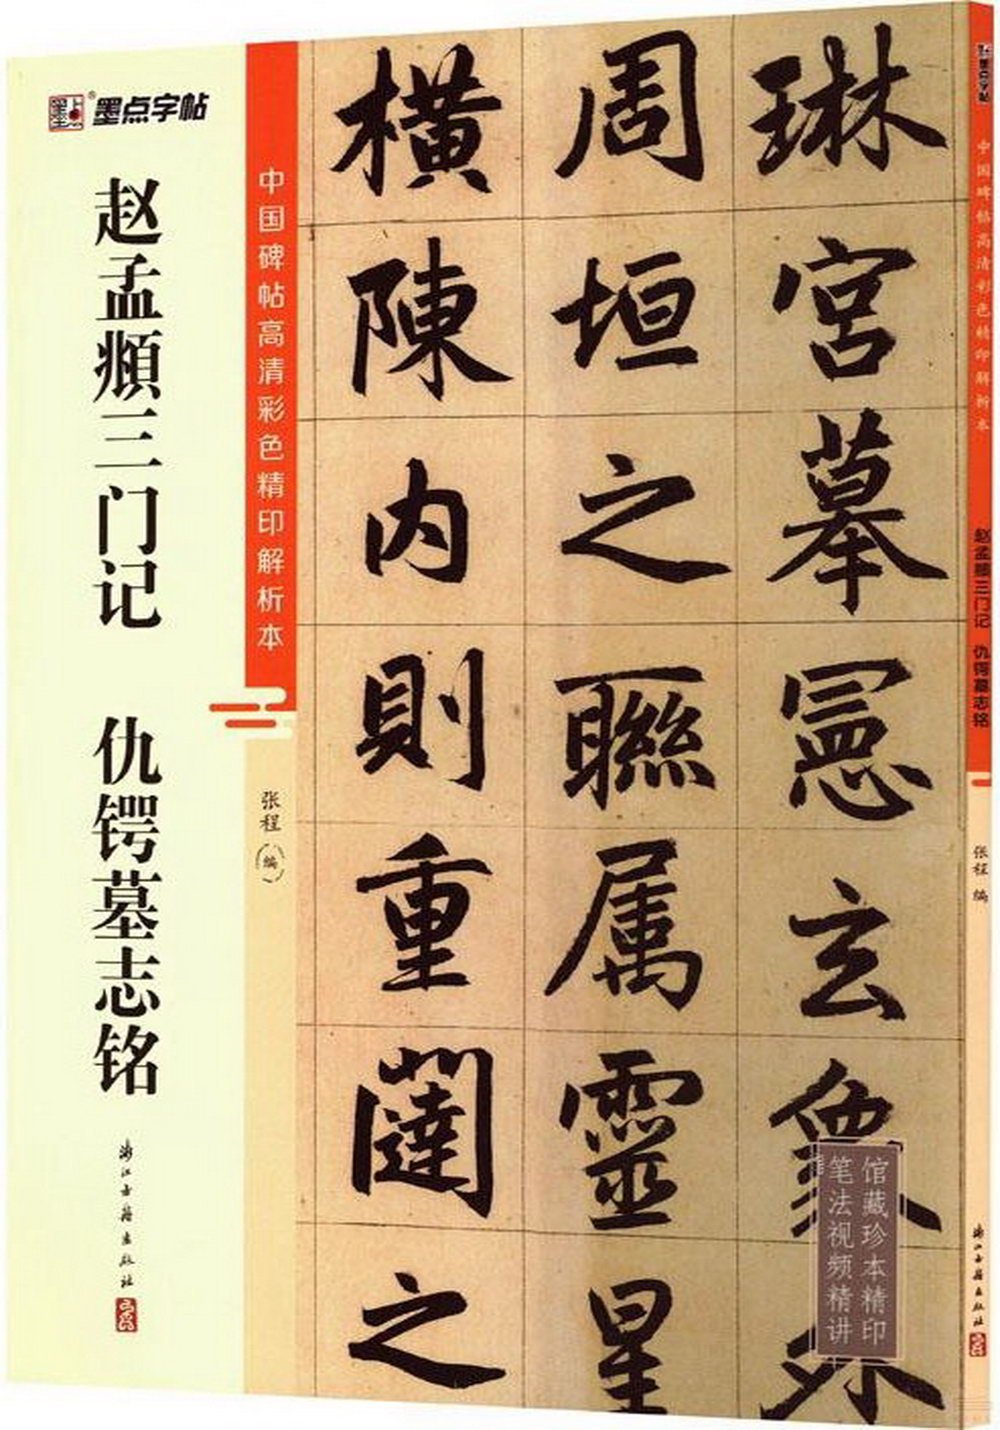 墨点
墨点字帖
赵孟頫三门记 仇锷墓志铭
浙江古籍出版社
中国碑帖高清彩色精印解析本
张程 编
琳宮摹憲玄象外
周垣之聯属靈星
橫陳内則重闥之
馆藏珍本精印
笔法视频精讲
墨点字帖
中国碑帖高清彩色精印解析本
赵孟頫三门记 仇锷墓志铭
张程 编
浙江古籍出版社